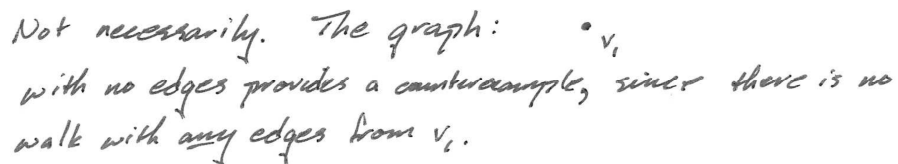 Not necessarily. The graph: • v₁
with no edges provides a counterexample, since there is no
walk with any edges from v₁.